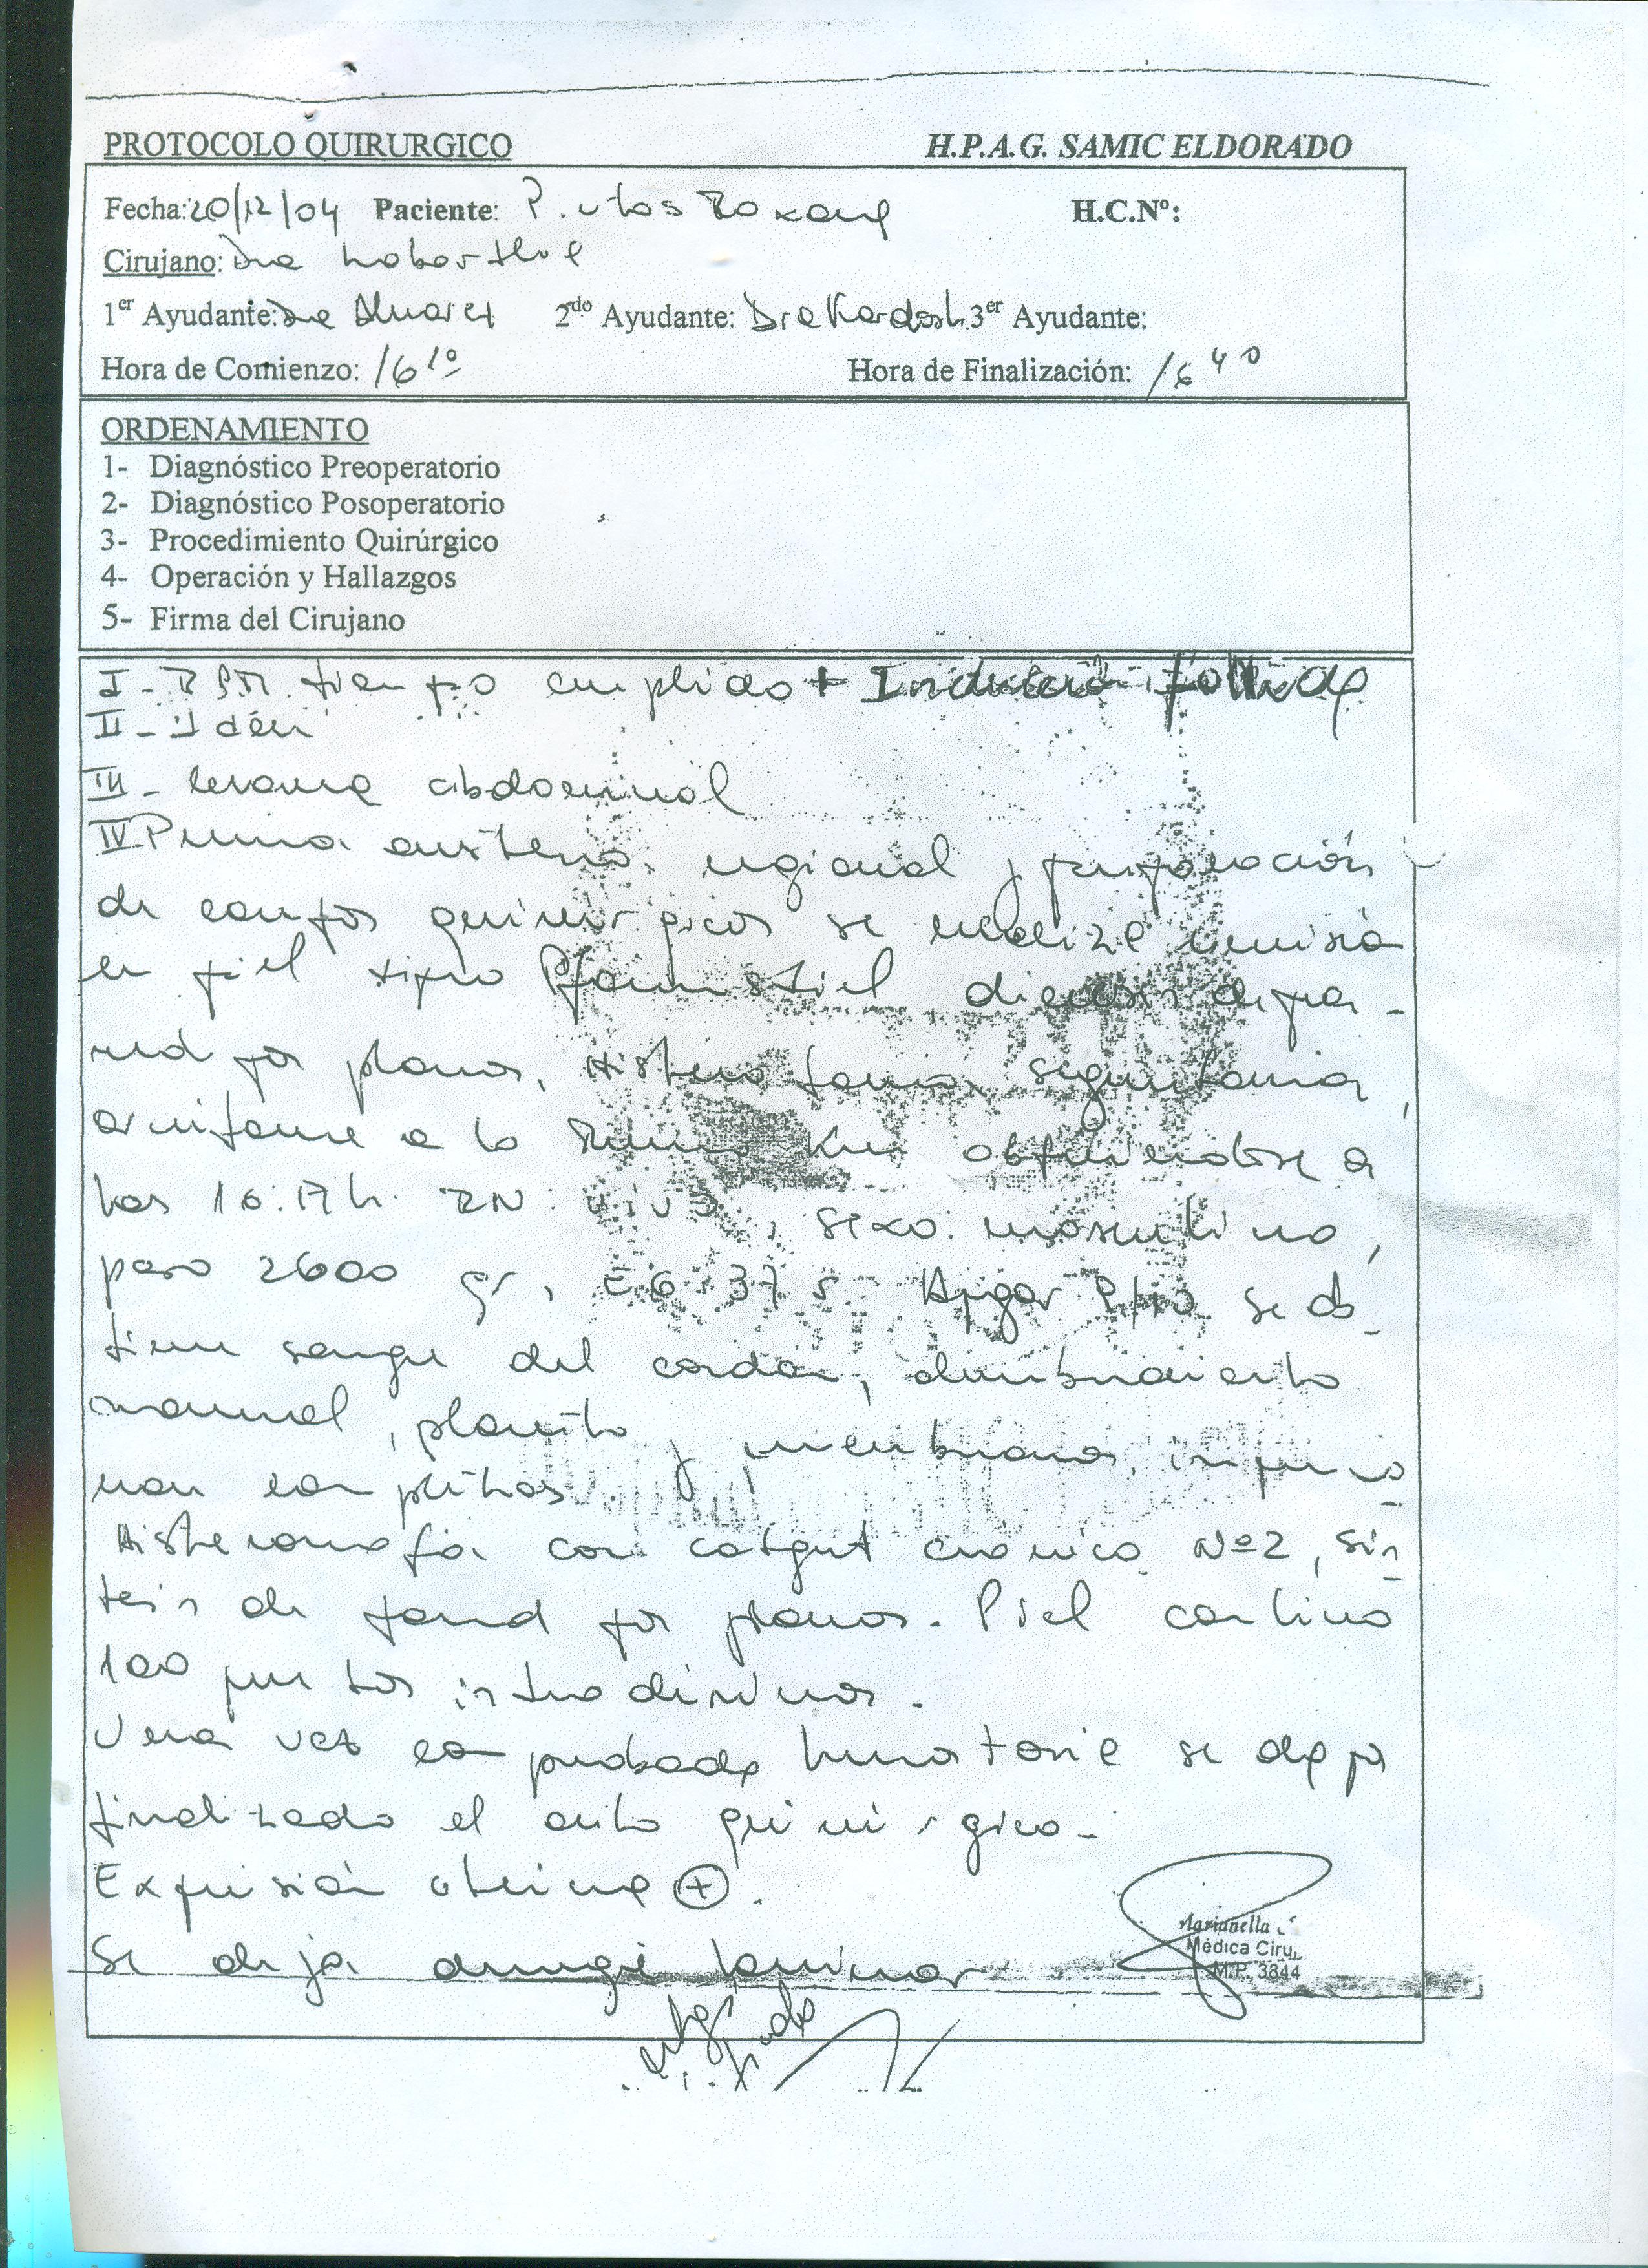 PROTOCOLO QUIRURGICO
H.P.A.G. SAMIC ELDORADO
Fecha: 20/12/04 Paciente: Roxana H.C.Nº:
Cirujano: Dra
1er Ayudante: Dra Alvarez 2do Ayudante: Dra 3er Ayudante:
Hora de Comienzo: 16 10 Hora de Finalización: 16 40
ORDENAMIENTO
1- Diagnóstico Preoperatorio
2- Diagnóstico Posoperatorio
3- Procedimiento Quirúrgico
4- Operación y Hallazgos
5- Firma del Cirujano
I - tiempo cumplido + Inducción fallida
II - Idem
III - Cesarea abdominal
IV Previa regional y preparación
de campos quirúrgicos se realiza incisión
en piel tipo Pfannestiel, dieresis de pa-
red por planos, Histerotomia segmentaria,
arciforme a lo Kerr obteniendose a
las 16:17 h. RN: vivo, sexo: masculino,
peso 2600 gr, Apgar 9/10 Se ob-
tiene sangre del cordon, alumbramiento
manual, placenta y membranas impresio-
nan completas
Histerorrafia con catgut cromico Nº2, sin-
tesis de pared por planos. Piel continua
100 puntos intradermicos.
Una vez comprobada hemostasia se da por
finalizado el acto quirúrgico-
Expresión uterina +.
Se deja drenaje laminar
Marianella
Médica Ciru
M.P. 3844